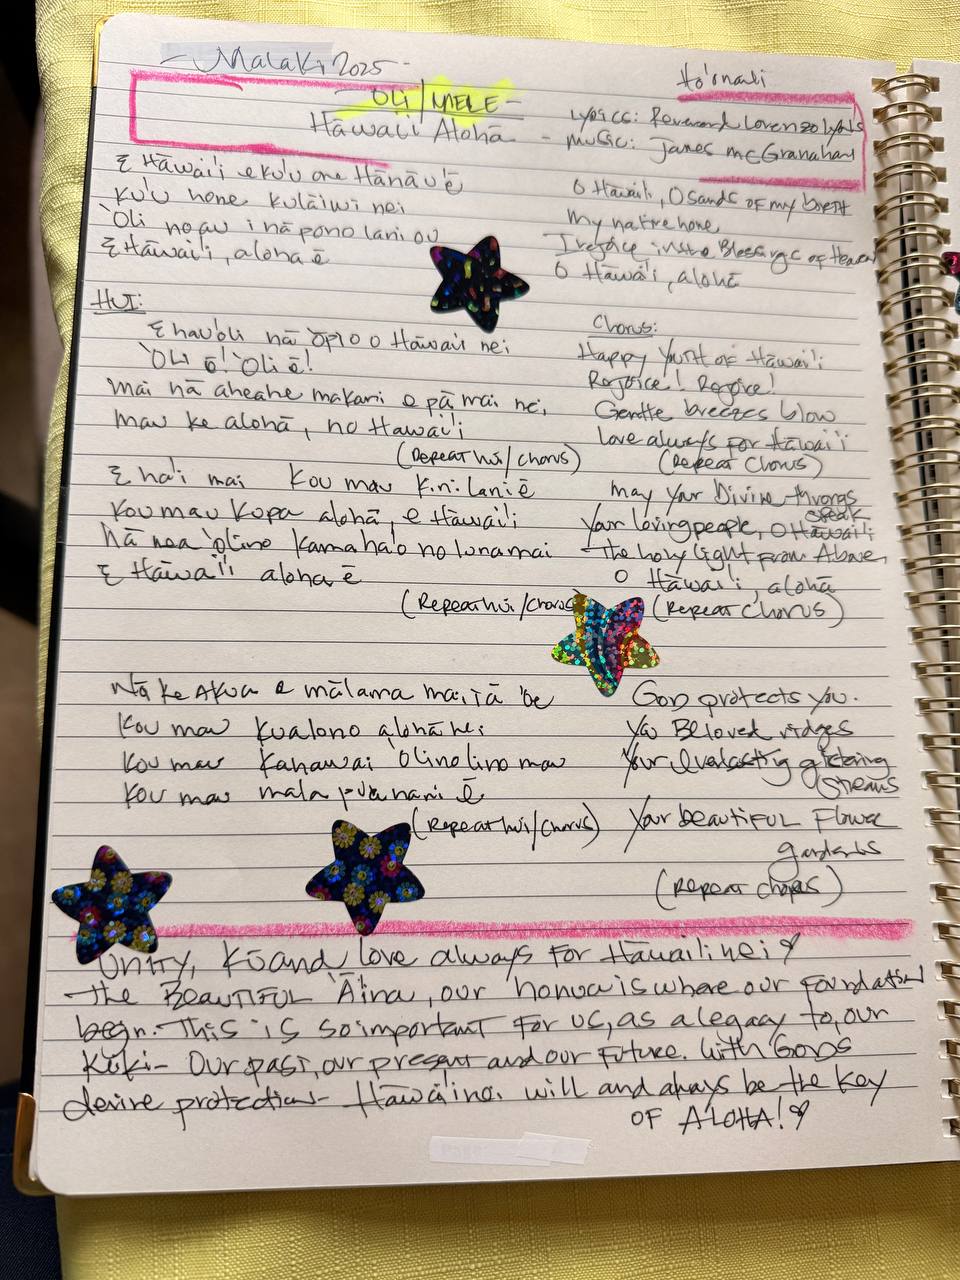 - Malaki 2025 -
Ho'onali
OLI/MELE -
Hāwaii Alohā
Lyrics: Reverend Lorenzo Lyons
- Music: James McGranahan
E Hāwai'i e ku'u one Hānāu ē
Ku'u home kulāiwi nei
'Oli no au i nā pono lani ou
E Hāwai'i, aloha ē
O Hawaii, O sands of my birth
My native home
I rejoice in the Blessings of Heaven
O Hāwai'i, alohā
HUI:
E hau'oli nā 'ōpio o Hāwaii nei
'Oli ē! 'Oli ē!
Mai nā aheahe makani e pā mai nei
mau ke alohā, no Hawai'i
(Repeat hui/chorus)
Chorus:
Happy Youth of Hāwai'i
Rejoice! Rejoice!
Gentle breezes blow
love always for Hāwai'i
(Repeat Chorus)
E ha'i mai Kou mau kini lani ē
Kou mau kupa alohā, e Hāwai'i
Nā mea 'ōlino kamaha'o no luna mai
E Hāwai'i aloha ē
(Repeat hui/chorus)
May Your Divine throngs
speak
Your loving people, O Hāwai'i
the holy light from Above,
O Hāwai'i, alohā
(Repeat Chorus)
Nā ke Akua e mālama mai iā 'oe
Kou mau kualono alohā nei
Kou mau kahawai 'ōlinolino mau
Kou mau mala pua nani ē
(Repeat hui/chorus)
GOD protects you.
Yo Beloved ridges
Your everlasting glistering
streams
Your beautiful Flower
gardents
(Repeat chorus)
Unity, Kū and love always for Hāwaii nei ♡
the BEAUTIFUL 'Āina, our honua is where our foundation
begin. This is so important for us, as a legacy to, our
Keiki - Our past, our present and our future. With Gods
devine protection - Hāwai'i nei will and always be the key
OF ALOHA! ♡